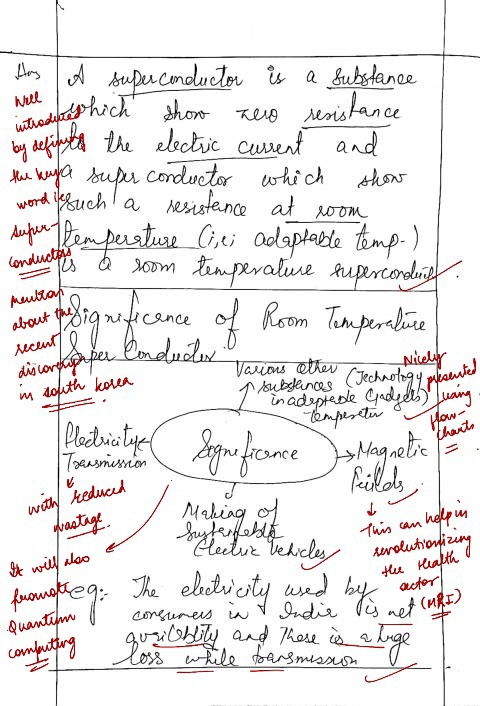 Ans
A superconductor is a substance
which show zero resistance
to the electric current and
a super conductor which show
such a resistance at room
temperature (i,e; adaptable temp-)
is a room temperature superconductor
Well
introduced
by defining
the key
word i.e
super-
conductors
mention
about the
recent
discovery
in south korea
Significence of Room Temperature
Super Conductor
Various other
substances (Technology
in adeptable Gadgets)
Temperatur
Nicely
presented
using
flow-
charts
Significence
Electricity
Transmission
with reduced
wastage
Magnetic
Fields
This can help in
revolutionizing
the Health
sector
(MRI)
Making of
Sustaneble
Electric Vehicles
It will also
promote
Quantum
computing
eg:- The electricity used by
consumers in India is not
availeblity and There is a huge
loss while transmission